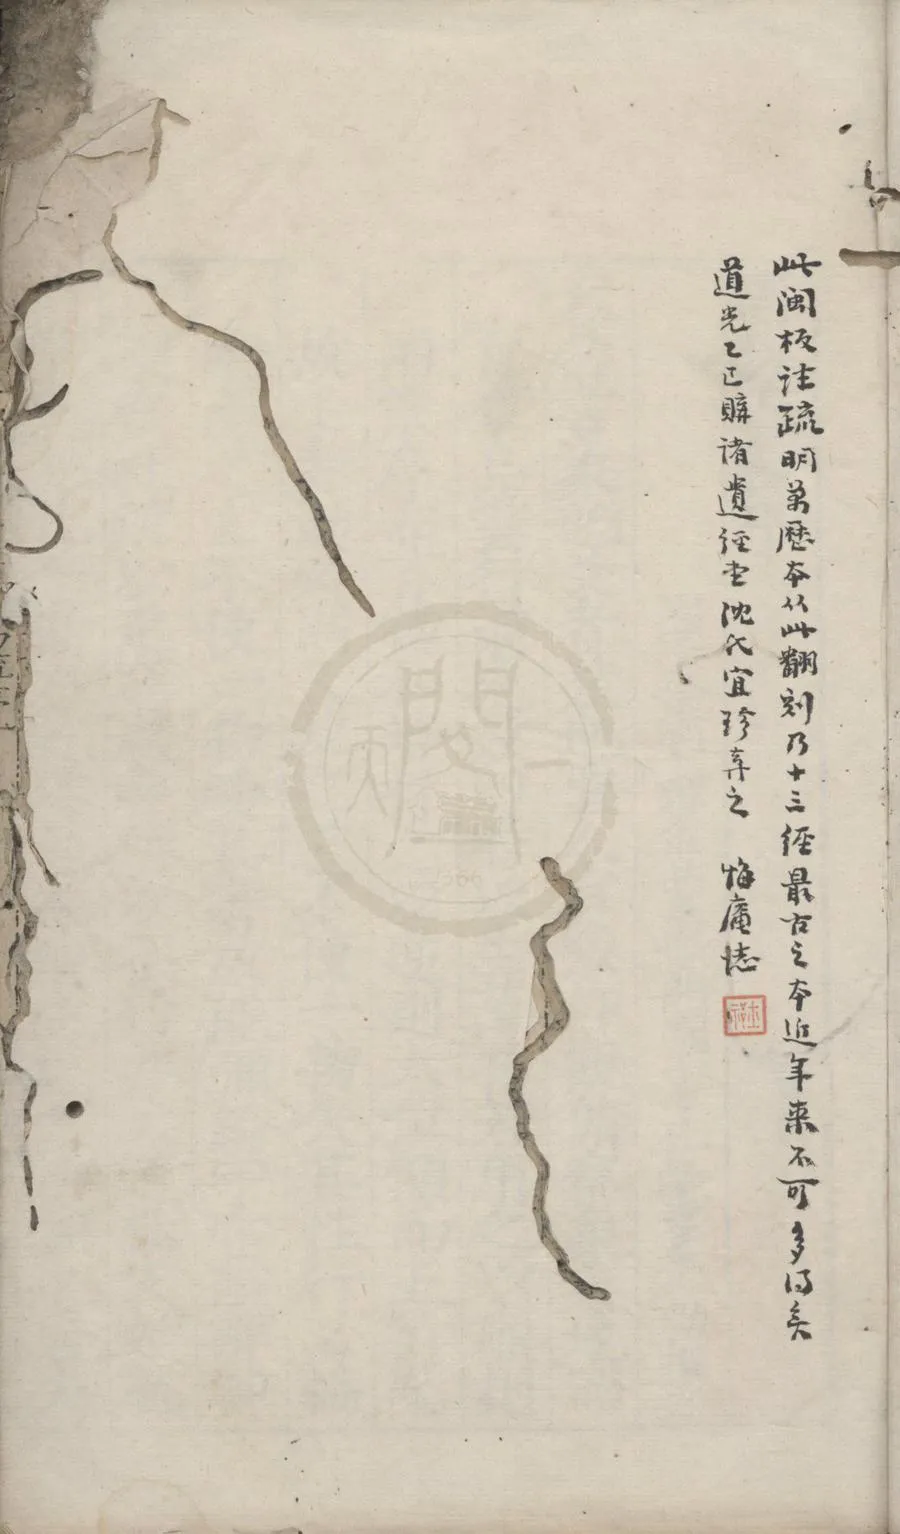 此閩板註疏明萬歷本从此翻刻乃十三經最古之本近年来不可多得矣
道光乙巳購諸遺經堂沈氏宜珍弆之 悔庵誌
天一閣
1566